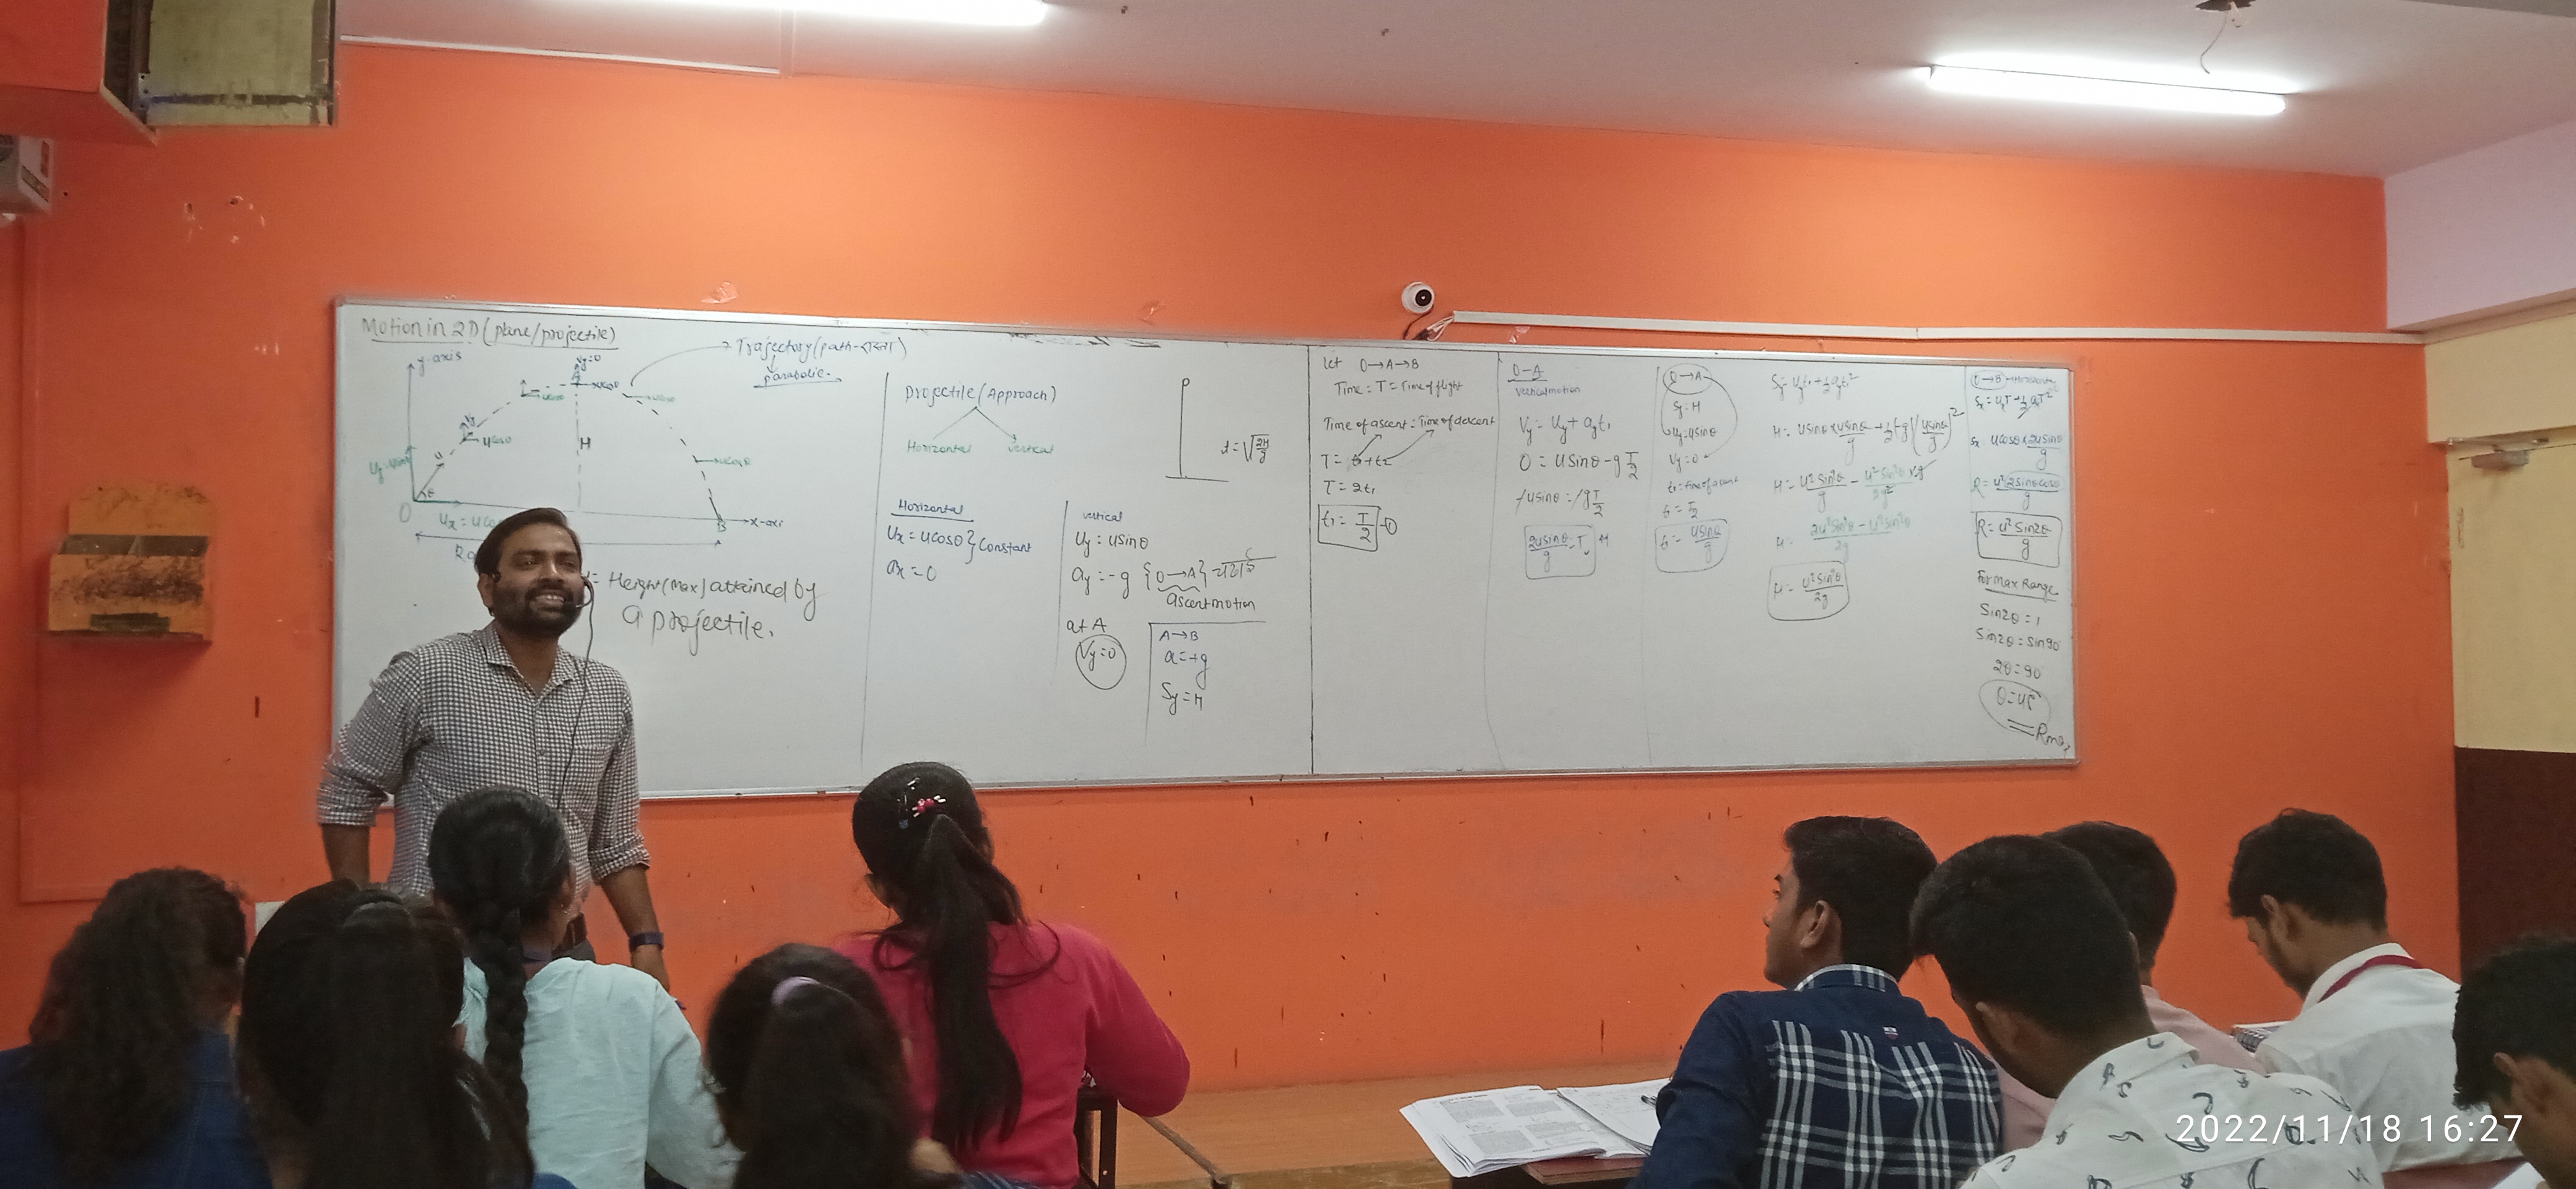 Motion in 2D (plane/projectile)
y-axis
Vy=0
A
ucosθ
ucosθ
ucosθ
ucosθ
ucosθ
H
u
θ
O
x-axi
B
Trajectory (path-रास्ता)
parabolic.
Height (Max) attained by
a projectile.
Projectile (Approach)
Horizontal
vertical
Horizontal
Ux = ucosθ } Constant
ax = 0
vertical
Uy = usinθ
ay = -g { O→A } चढाई
ascent motion
at A
Vy=0
A→B
a=+g
Sy=H
t=√2H/g
Let O→A→B
Time: T = Time of flight
Time of ascent = Time of descent
T = t1+t2
T = 2t1
t1 = T/2 -①
O-A
Vertical motion
Vy = Uy + ay t1
0 = usinθ - g T/2
usinθ = g T/2
2usinθ/g = T
O→A
Sy = H
Uy=usinθ
Vy=0
t1=time of ascent
t1 = T/2
t1 = usinθ/g
Sy = Uyt1 + 1/2 ayt1²
H = usinθ x usinθ/g + 1/2 (-g) (usinθ/g)²
H = u²sin²θ/g - u²sin²θ x g/2g²
H = 2u²sin²θ - u²sin²θ/2g
H = u²sin²θ/2g
O→B → Horizontal
Sx = UxT + 1/2 axT²
Sx = ucosθ x 2usinθ/g
R = u²(2sinθcosθ)/g
R = u²sin2θ/g
For Max Range
Sin2θ = 1
Sin2θ = Sin90
2θ=90
θ=45°
2022/11/18 16:27